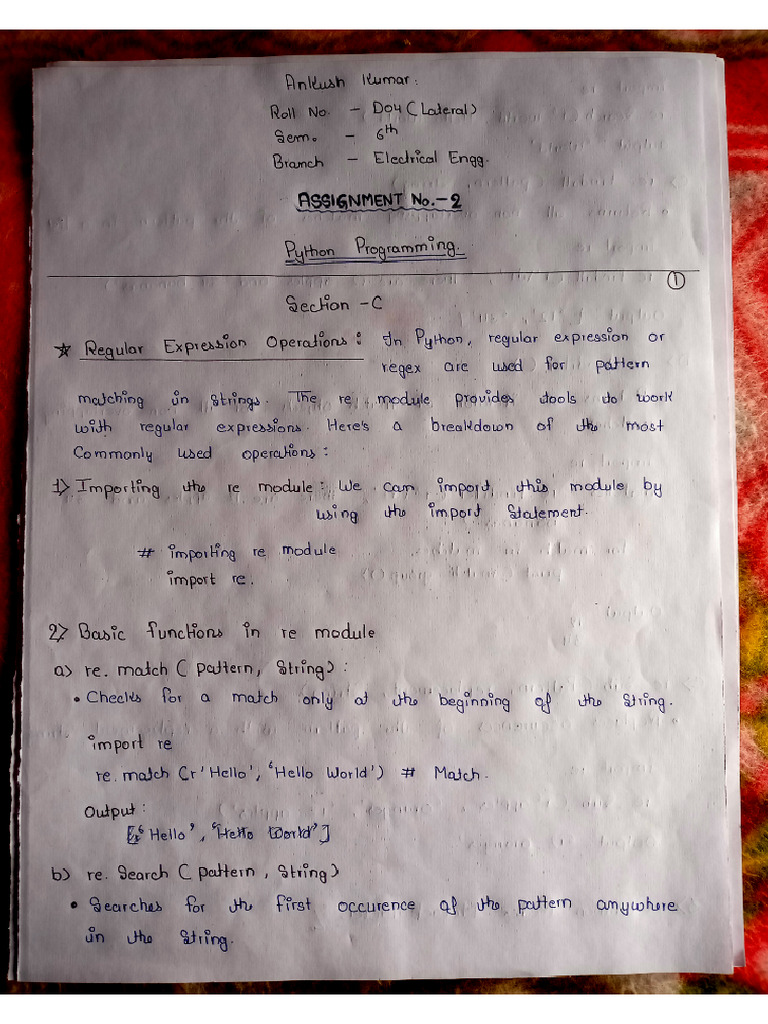 Ankush Kumar.
Roll No. - D04 (Lateral)
Sem. - 6th
Branch - Electrical Engg.
ASSIGNMENT No.-2
Python Programming.
1
Section -C
☆ Regular Expression Operations: In Python, regular expression or
regex are used for pattern
matching in strings. The re module provides tools to work
with regular expressions. Here's a breakdown of the most
Commonly used operations:
1) Importing the re module: We can import this module by
using the import Statement.
# importing re module
import re.
2) Basic functions in re module
a) re. match ( pattern, String):
• Checks for a match only at the beginning of the String.
import re
re. match (r'Hello', 'Hello World') # Match.
Output:
['Hello', 'Hello World']
b) re. Search ( pattern, String)
• Searches for the first occurence of the pattern anywhere
in the String.